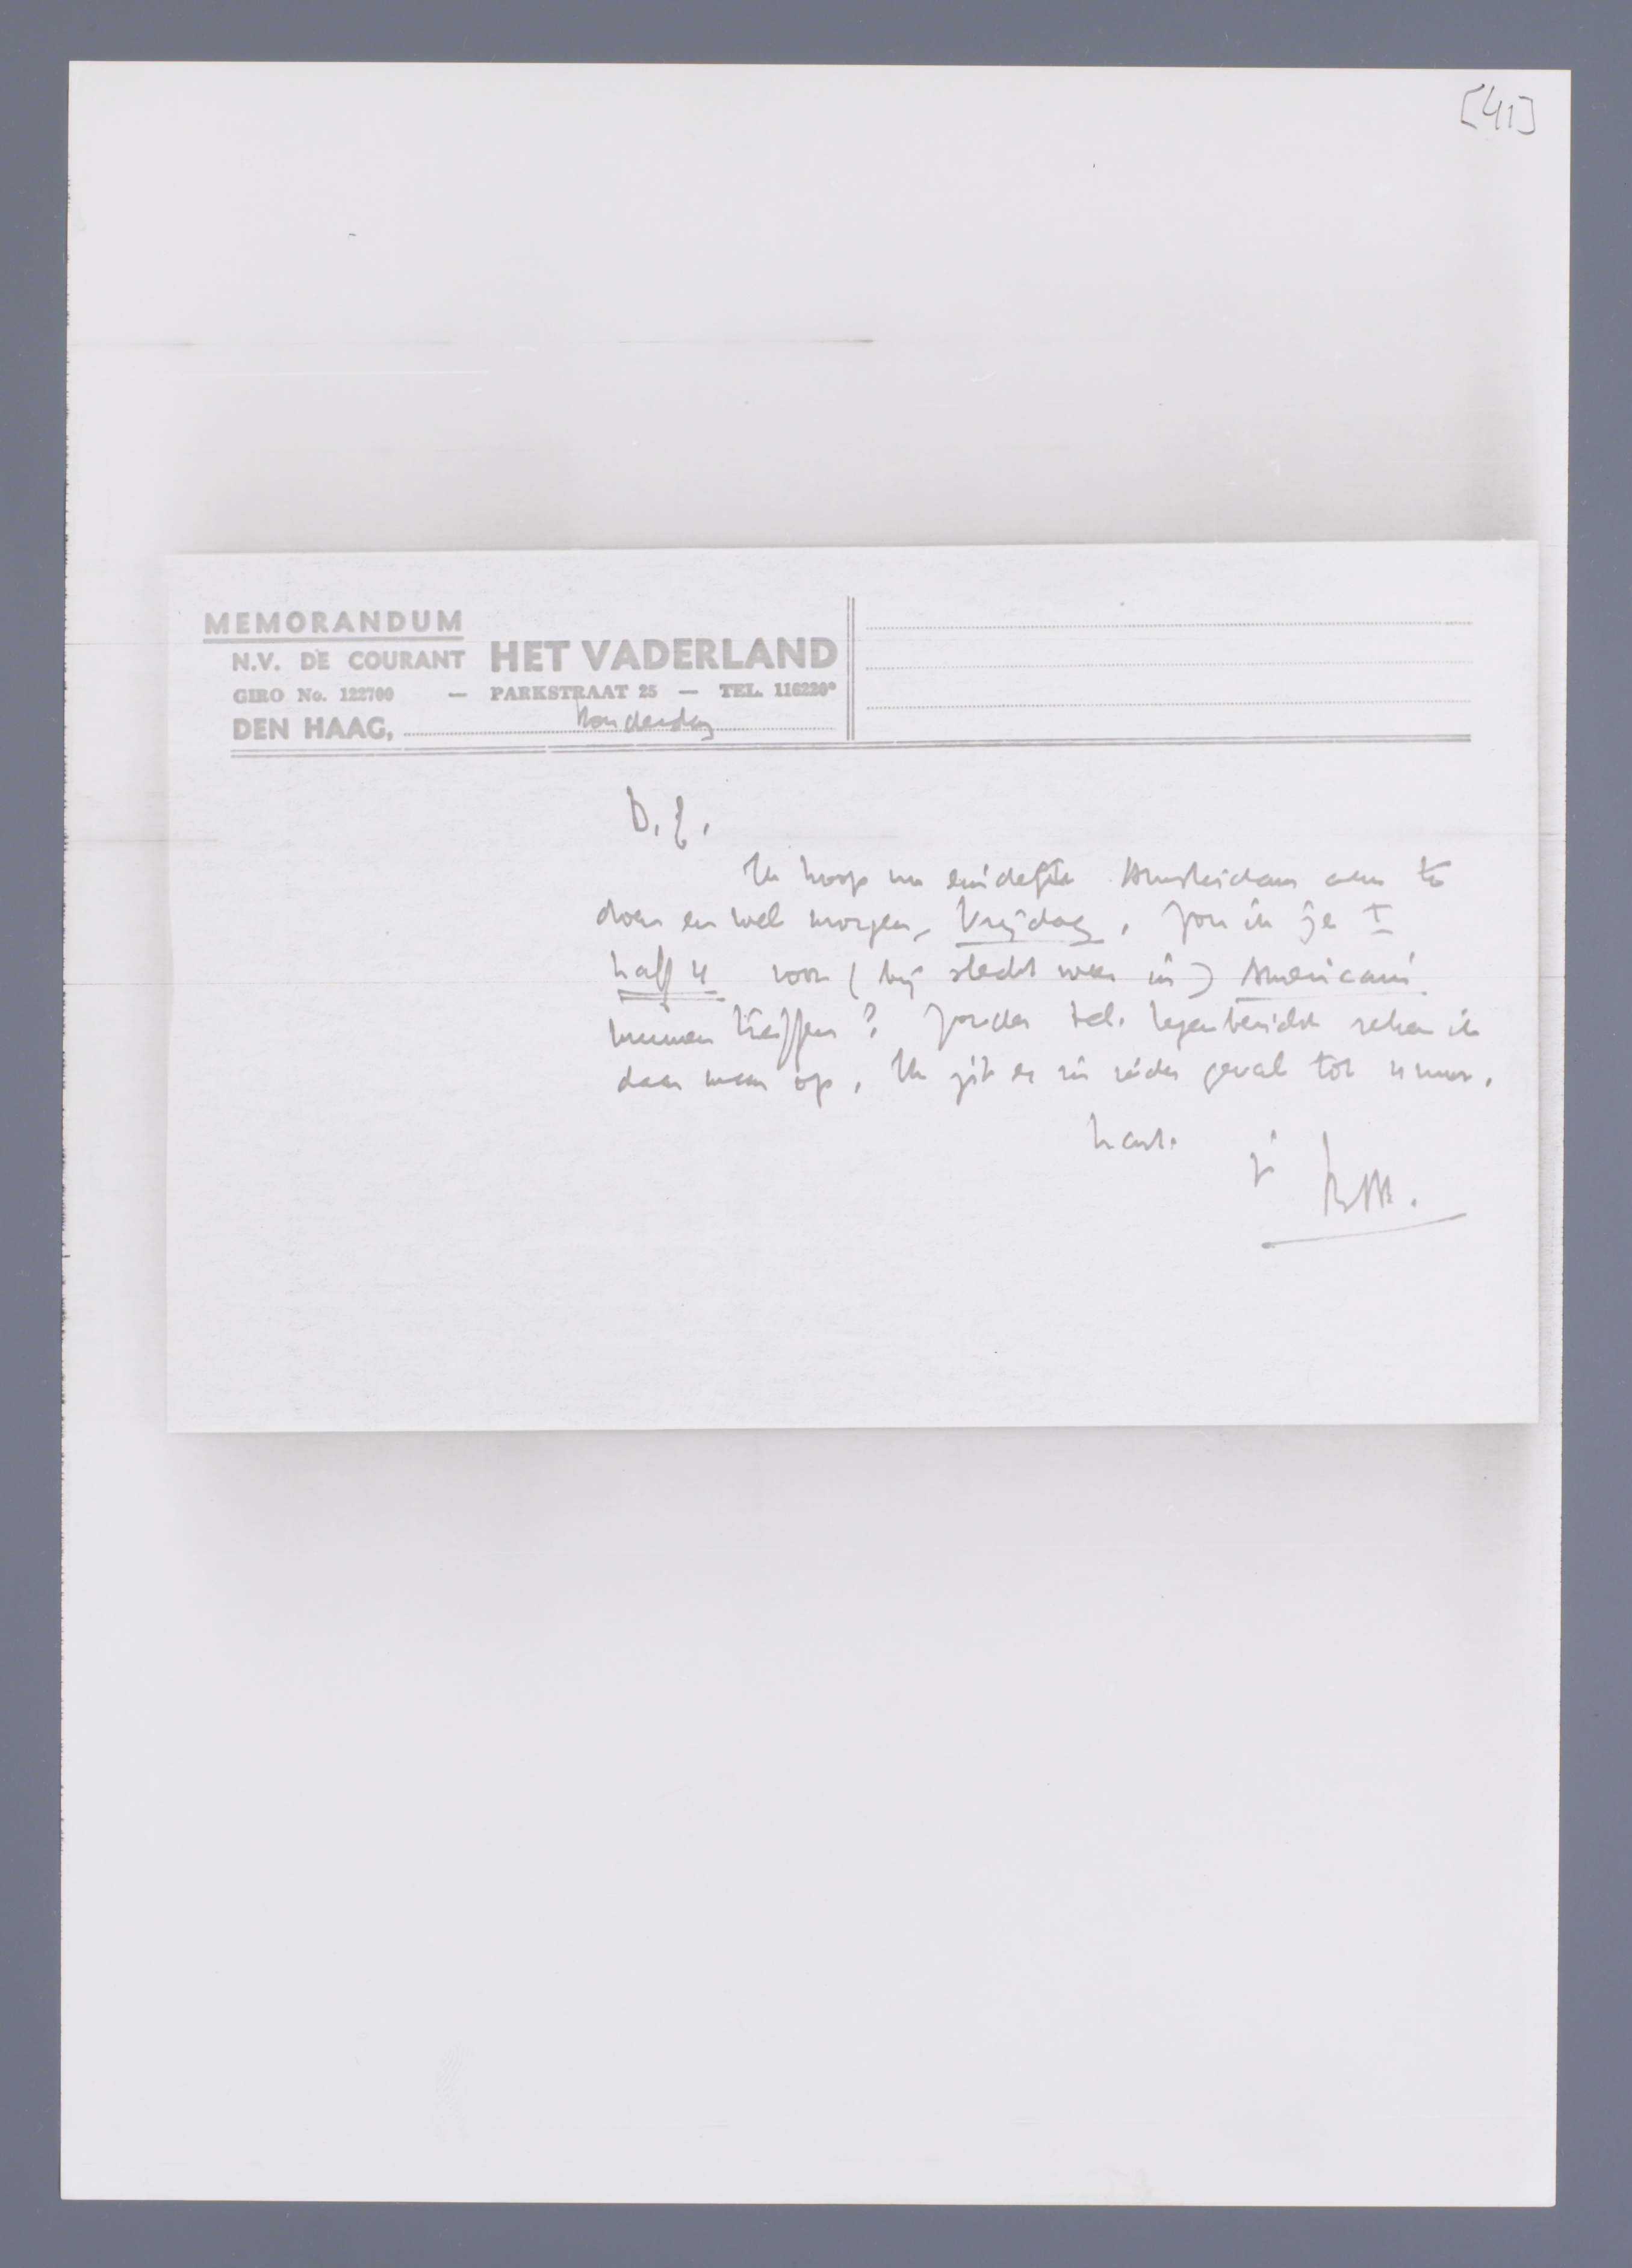 [41]
MEMORANDUM
N.V. DE COURANT HET VADERLAND
GIRO No. 122700 — PARKSTRAAT 25 — TEL. 116220*
DEN HAAG, Donderdag
D. J.
Ik hoop nu eindelijk Amsterdam aan te
doen en wel morgen, Vrijdag. Zou ik je ±
half 4 voor (bij slecht weer in) Americain
kunnen treffen? Zonder tel. tegenbericht reken ik
daar maar op. Ik zit er in ieder geval tot 4 uur.
hart. je